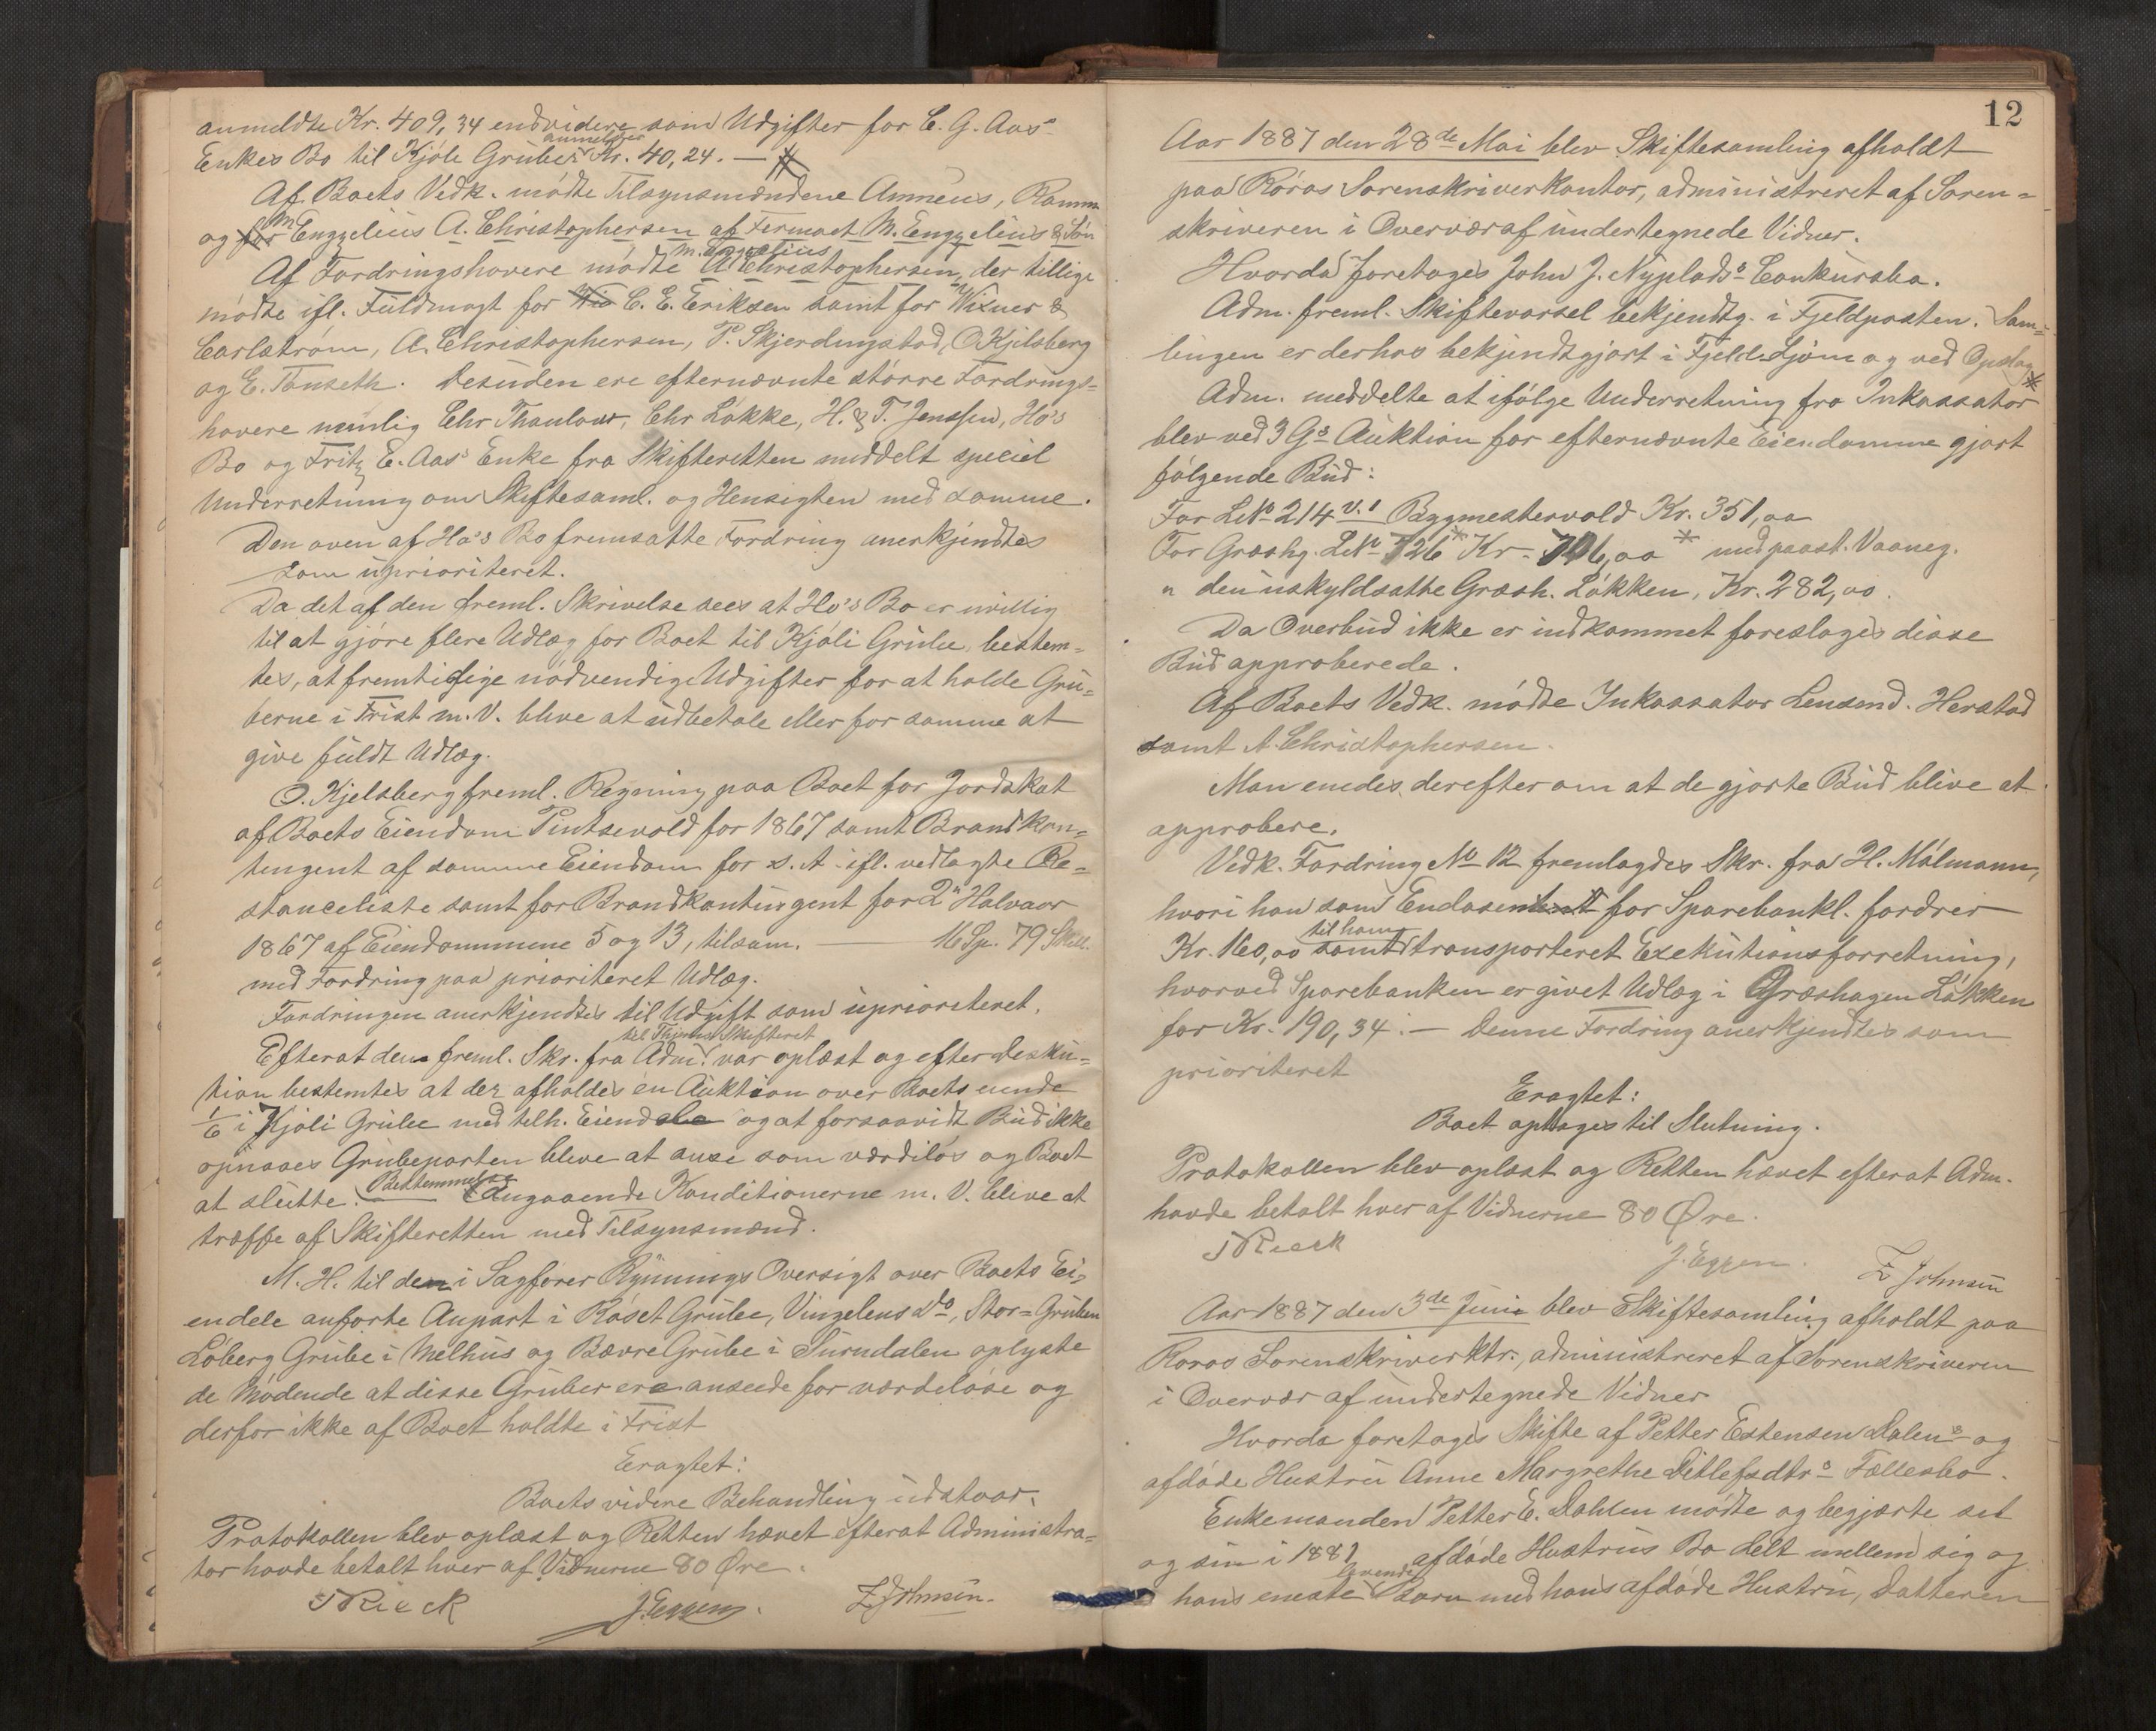 anmeldte Kr. 409,34 endvidere som Udgifter for C. G. Aas's
Enkes Bo til Kjøli Gruber anmeldes Kr. 40,24. —
Af Boets Vedk. mødte Tilsynsmændene Amnéus, Ramm
og for M Engzelius A. Christophersen af Firmaet M. Engzelius & Søn
Af Fordringshavere mødte M. Engzelius A Christophersen, der tillige
mødte ifl. Fuldmagt for C. E. Eriksen samt for Wixner &
Carlstrøm, A. Christophersen, P. Skjerdingstad, O Kjelsberg
og E. Tønseth. Desuden ere efternævnte større Fordrings-
havere nemlig Chr Thaulow, Chr Løkke, H. & T. Jenssen, Ho's
Bo og Fritz E. Aas' Enke fra Skifteretten meddelt speciel
Underretning om Skiftesaml. og Hensigten med samme.
Den oven af Ho's Bo fremsatte Fordring anerkjendtes
som uprioriteret.
Da det af den freml. Skrivelse sees at Ho's Bo er uvillig
til at gjøre flere Udlæg for Boet til Kjøli Grube, bestem-
tes, at fremtidige nødvendige Udgifter for at holde Gru-
berne i Frist m. V. blive at udbetale eller for samme at
give fuldt Udlæg.
O. Kjelsberg freml. Regning paa Boet for Jordskat
af Boets Eiendom Pintsevold for 1867 samt Brandkon-
tingent af samme Eiendom for s. A. ifl. vedlagte Re-
stanceliste samt for Brandkontingent for 2t Halvaar
1867 af Eiendommene 5 og 13, tilsam. — 16 Sp. 79 Skill.
med Fordring paa prioriteret Udlæg.
Fordringen anerkjendtes til Udgift som uprioriteret.
Efterat den freml. Skr. fra Adm. til Skifteret var oplæst og efter Disku-
tion bestemtes at der afholdes en Auktion over Boets eiende
1/6 i Kjøli Grube med tilh. Eiendele og at forsaavidt Bud ikke
opnaaes Grubeparten bleve at anse som værdiløs og Boet
at slutte. Bestemmelse Angaaende Konditionerne m. V. blive at
træffe af Skifteretten med Tilsynsmænd.
M. H. til den i Sagfører Rynnings Oversigt over Boets Ei-
endele anførte Anpart i Røset Grube, Vingelens Do, Stor-Gruben
Løberg Grube i Melhus og Bævre Grube i Surndalen oplyste
de Mødende at disse Gruber ere ansede for værdeløse og
derfor ikke af Boet holdte i Frist
Eragtet:
Boets videre Behandling udstaar.
Protokollen blev oplæst og Retten hævet efterat Administra-
tor havde betalt hver af Vidnerne 80 Øre.
J Rieck J. Eggen. Z Johnsen.
12
Aar 1887 den 28de Mai blev Skiftesamling afholdt
paa Røros Sorenskriverkontor, administreret af Soren-
skriveren i Overvær af undertegnede Vidner.
Hvorda foretages John J. Nyplads's Conkursbo.
Adm. freml. Skiftevarsel bekjendtg. i Fjeldposten. Sam-
lingen er derhos bekjendtgjort i Fjell-Ljom og ved Opslag
Adm. meddelte at ifølge Underretning fra Inkassator
blev ved 3 Gs Auktion for efternævnte Eiendomme gjort
følgende Bud:
For LNo 214 v. 1 Bygmestervold Kr. 351,00
For Græshg. LNo 726 Kr. 706,00 med paast. Vaaneg.
" den uskyldsatte Græsh. Løkken, Kr. 282,00.
Da Overbud ikke er indkommet foreslages disse
Bud approberede.
Af Boets Vedk. mødte Inkassator Lensmd. Herstad
samt A. Christophersen.
Man enedes derefter om at de gjorte Bud blive at
approbere.
Vedk. Fordring No 12 fremlagdes Skr. fra H. Mølmann,
hvori han som Endosent for Sparebankl. fordrer
Kr. 160,00 samt til ham transporteret Exekutionsforretning,
hvorved Sparebanken er givet Udlæg i Græshagen Løkken
for Kr. 190,34. — Denne Fordring anerkjendtes som
prioriteret
Eragtet:
Boet optages til Slutning.
Protokollen blev oplæst og Retten hævet efterat Adm.
havde betalt hver af Vidnerne 80 Øre.
J Rieck J. Eggen. Z Johnsen
Aar 1887 den 3de Juni blev Skiftesamling afholdt paa
Røros Sorenskriverktr., administreret af Sorenskriveren
i Overvær af undertegnede Vidner
Hvorda foretages Skifte af Petter Estensen Dalens og
afdøde Hustru Anne Margrethe Ditlefsdtrs Fællesbo.
Enkemanden Petter E. Dahlen mødte og begjærte sit
og sin i 1881 afdøde Hustrus Bo delt mellem sig og
hans eneste levende Barn med hans afdøde Hustru, Datteren